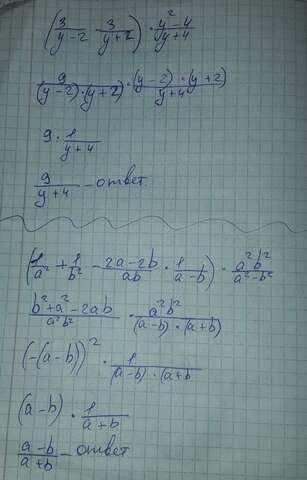 (3/(y-2) - 3/(y+2)) · (y²-4)/(y+4)
9/((y-2)·(y+2)) · ((y-2)·(y+2))/(y+4)
9 · 1/(y+4)
9/(y+4) - ответ
(1/a² + 1/b² - (2a-2b)/ab · 1/(a-b)) · a²b²/(a²-b²)
(b²+a²-2ab)/a²b² · a²b²/((a-b)·(a+b))
(-(a-b))² · 1/((a-b)·(a+b
(a-b) · 1/(a+b)
(a-b)/(a+b) - ответ